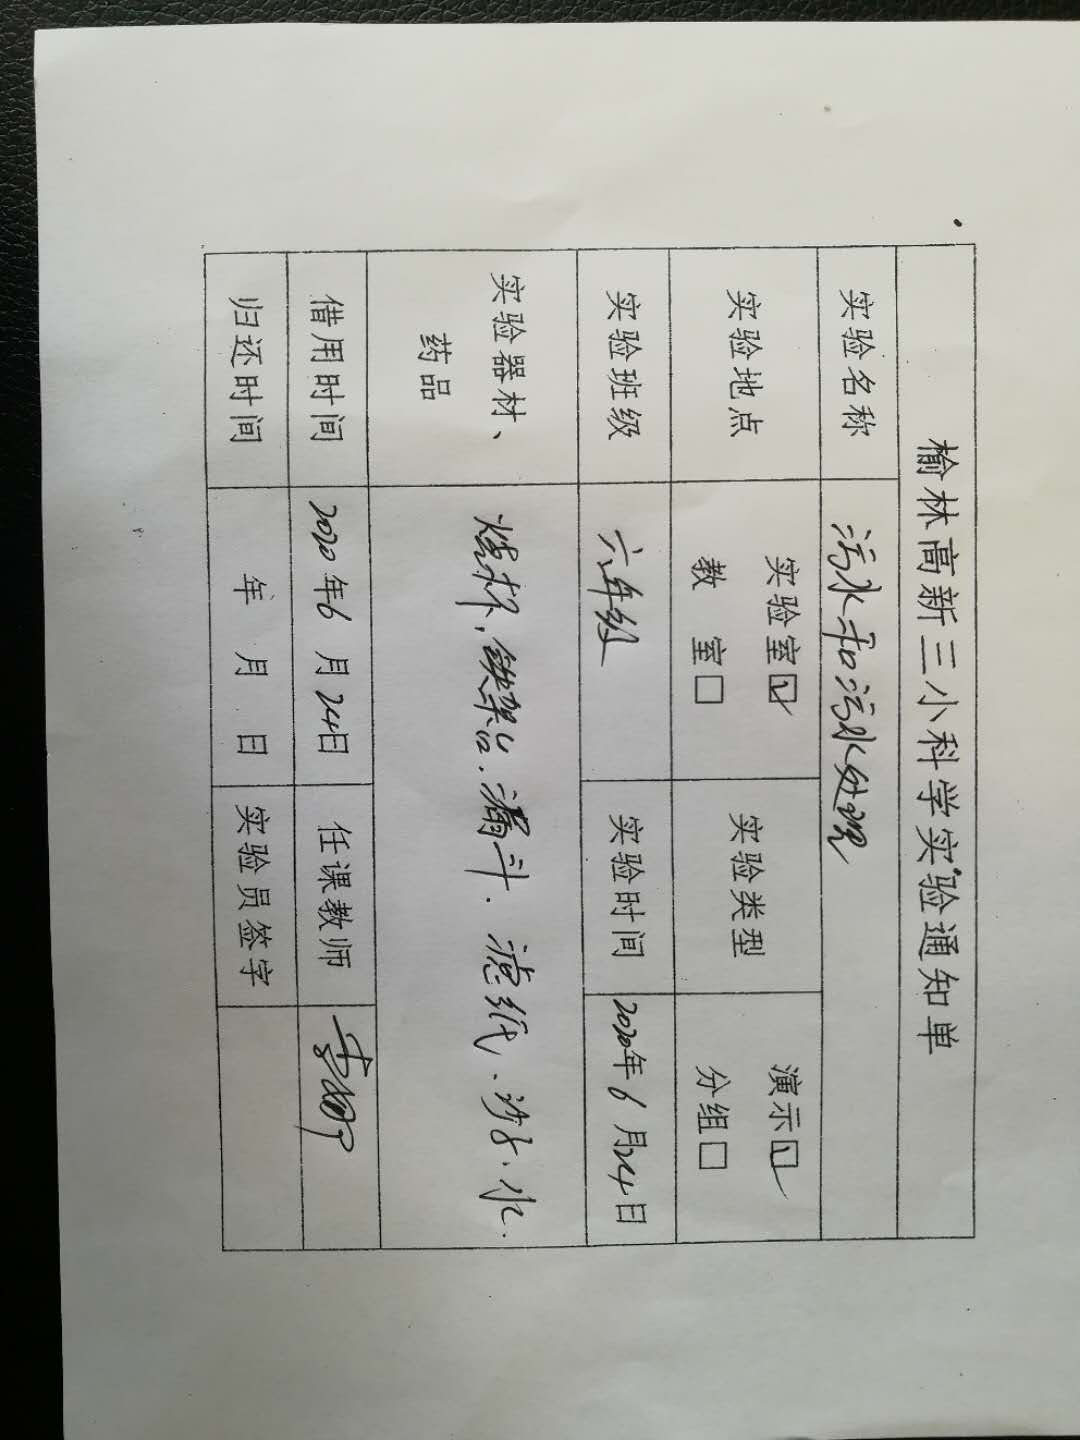 榆林高新三小科学实验通知单
实验名称 污水和污水处理
实验地点 实验室☑ 教 室□ 实验类型 演示☑ 分组□
实验班级 六年级 实验时间 2020年6月24日
实验器材、药品 烧杯、铁架台、漏斗、滤纸、沙子、水.
借用时间 2020年6月24日 任课教师
归还时间 年 月 日 实验员签字